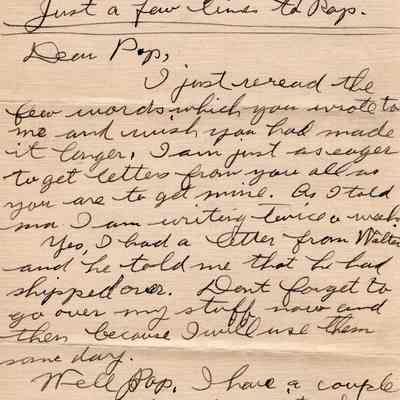 Just a few lines to Pop.
Dear Pop,
I just reread the
few words which you wrote to
me and wish you had made
it longer. I am just as eager
to get letters from you all as
you are to get mine. As I told
ma I am writing twice a week.
Yes, I had a letter from Walter
and he told me that he had
shipped over. Dont forget to
go over my stuff now and
then because I will use them
some day.
Well Pop, I have a couple